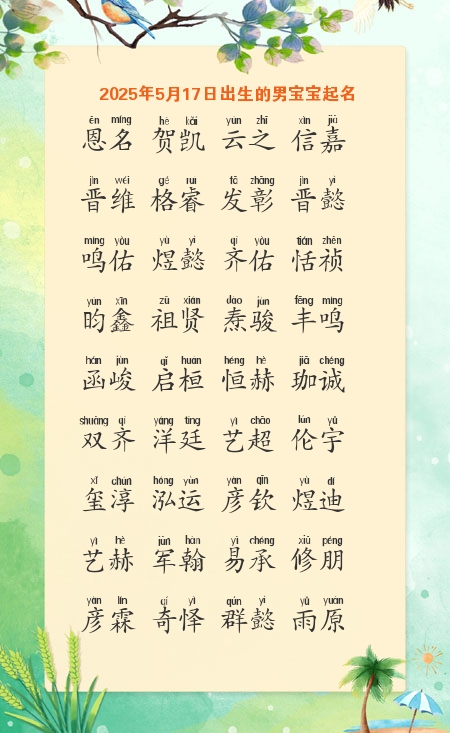 2025年5月17日出生的男宝宝起名
ēn míng hè kǎi yún zhī xìn jiā
恩名 贺凯 云之 信嘉
jìn wéi gé ruì fā zhāng jìn yì
晋维 格睿 发彰 晋懿
míng yòu yù yì qí yòu tián zhēn
鸣佑 煜懿 齐佑 恬祯
yún xīn zǔ xián dào jùn fēng míng
昀鑫 祖贤 焘骏 丰鸣
hán jùn qǐ huán héng hè jiā chéng
函峻 启桓 恒赫 珈诚
shuāng qí yáng tíng yì chāo lún yǔ
双齐 洋廷 艺超 伦宇
xǐ chún hóng yùn yàn qīn yù dí
玺淳 泓运 彦钦 煜迪
yì hè jūn hàn yì chéng xiū péng
艺赫 军翰 易承 修朋
yàn lín qí yì qún yì yǔ yuán
彦霖 奇怿 群懿 雨原